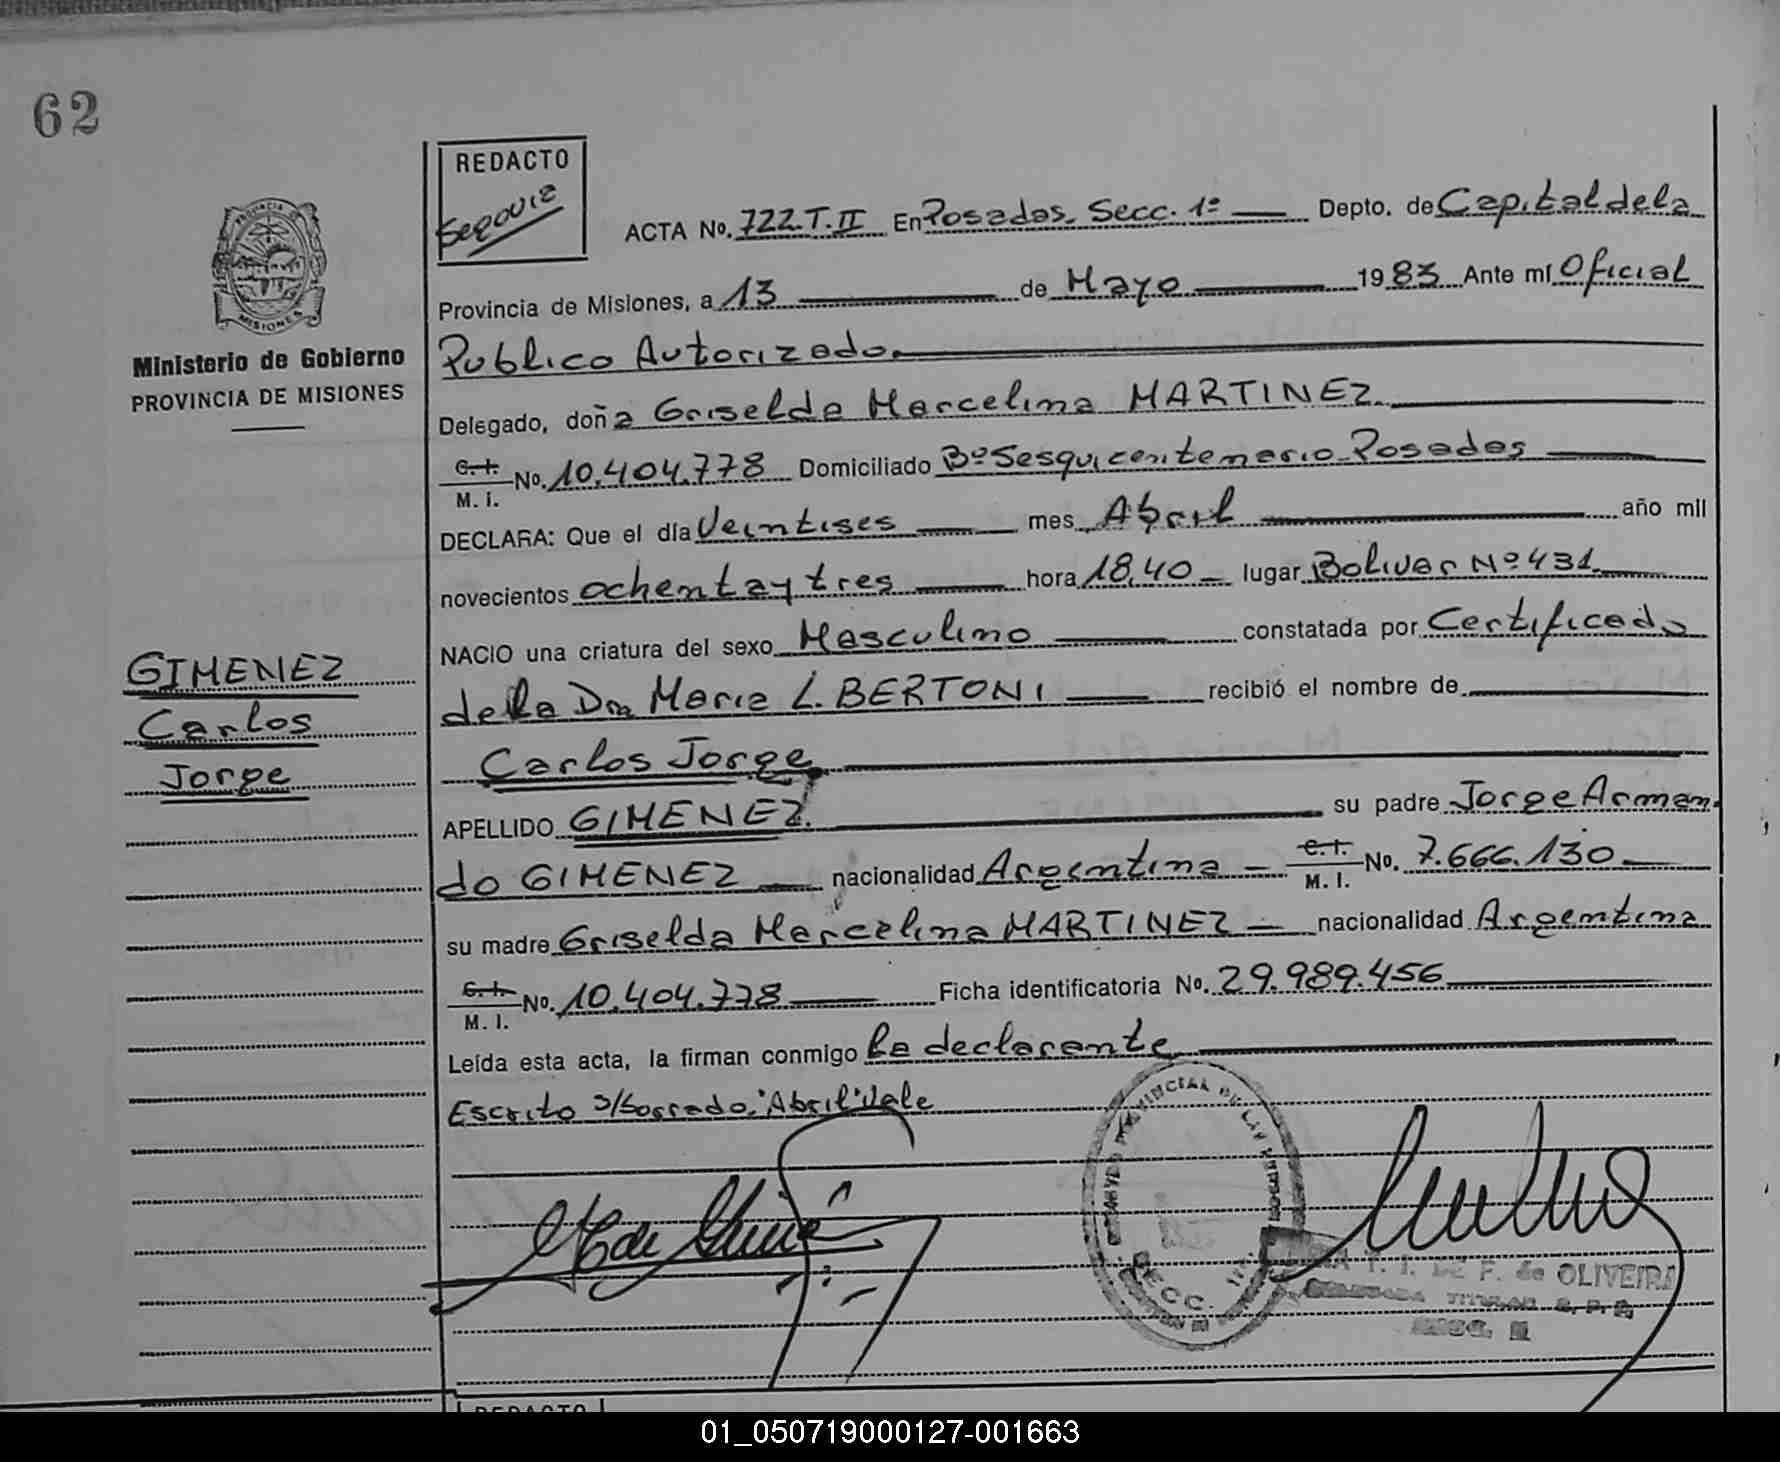 62
REDACTO
Segovia
ACTA No. 722.T.II En Posadas. Secc. 1ª Depto. de Capital de la
Provincia de Misiones, a 13 de Mayo 1983 Ante mí Oficial
Publico Autorizado.
PROVINCIA DE
MISIONES
Ministerio de Gobierno
PROVINCIA DE MISIONES
Delegado, doña Griselda Marcelina MARTINEZ.
C. I.
M. I. No. 10.404.778 Domiciliado Bº Sesquicentenario Posadas
DECLARA: Que el día Veintises mes Abril año mil
novecientos ochenta y tres hora 18,40 lugar Bolivar Nº 431.
NACIO una criatura del sexo Masculino constatada por Certificado
de la Dra Maria L. BERTONI recibió el nombre de
Carlos Jorge
APELLIDO GIMENEZ. su padre Jorge Arman
do GIMENEZ nacionalidad Argentina C. I. M. I. No. 7.666.130
su madre Griselda Marcelina MARTINEZ nacionalidad Argentina
C. I.
M. I. No. 10.404.778 Ficha identificatoria No. 29.989.456
Leída esta acta, la firman conmigo la declarante
Escrito s/borrado: "Abril" Vale
GIMENEZ
Carlos
Jorge
PROVINCIAL DE LAS
SECC. 1ra.
T. I. DE F. de OLIVEIRA
TITULAR
REDACTO
01_050719000127-001663